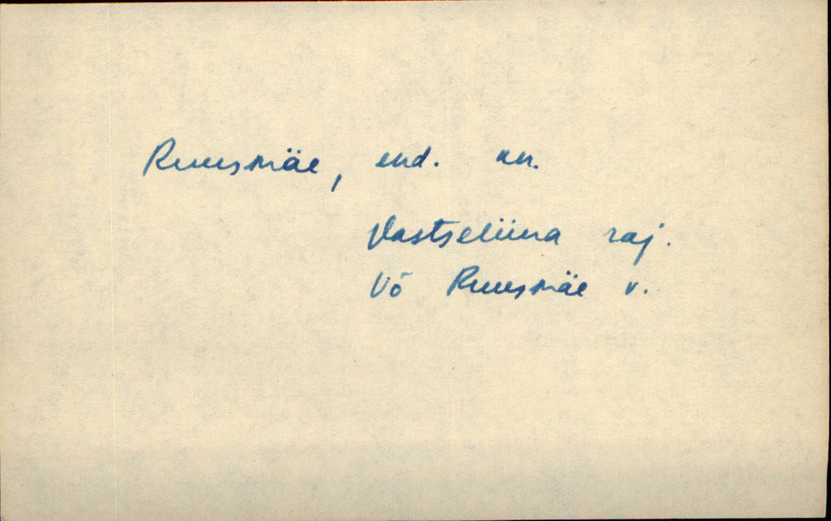 Ruusmäe, end. kn.
Vastseliina raj.
Võ Ruusmäe v.